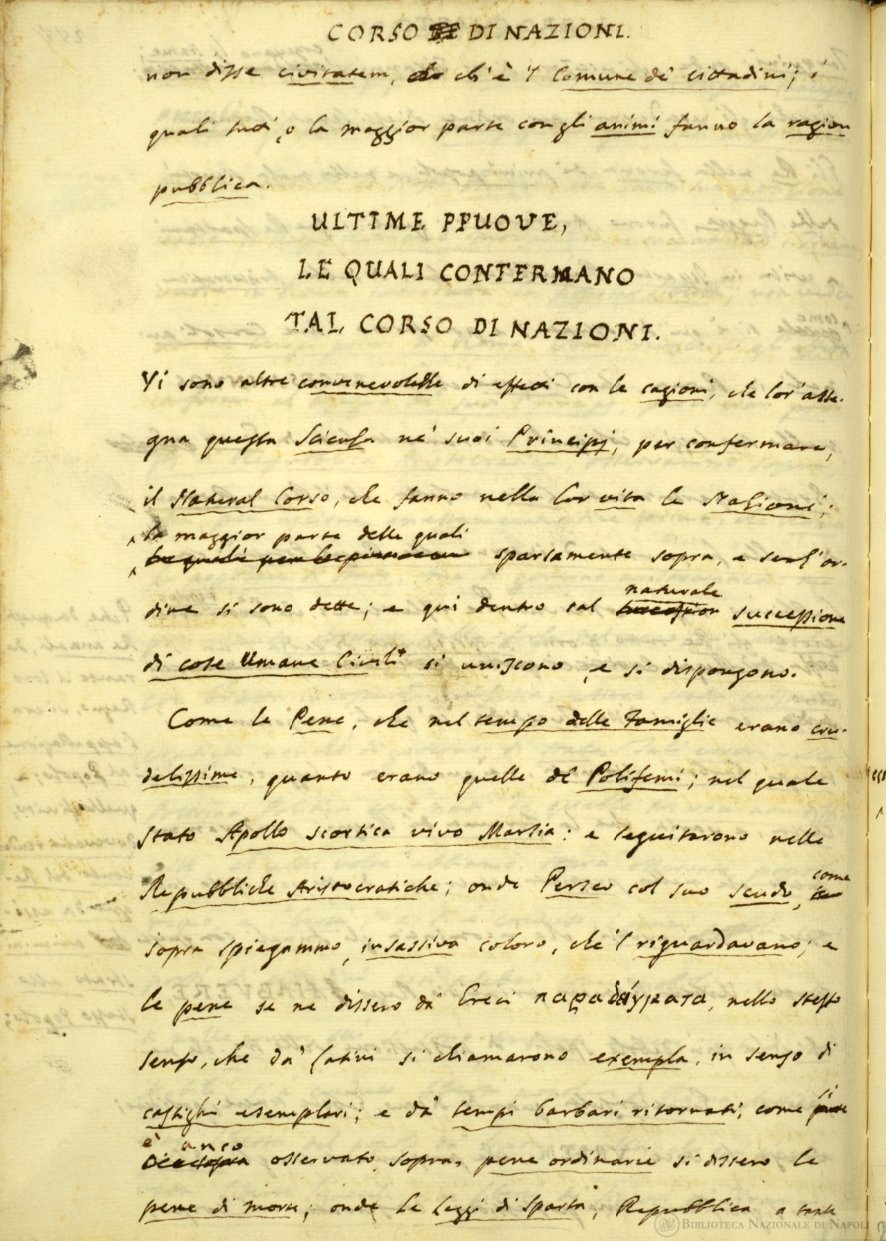 CORSO DI NAZIONI.
non disse civitatem, ch'è 'l Comune de' cittadini; i
quali tutti, o la maggior parte con gli animi fanno la ragion
pubblica.
ULTIME PRUOVE,
LE QUALI CONFERMANO
TAL CORSO DI NAZIONI.
Vi sono altre convenevolezze di effetti con le cagioni, che lor' asse-
gna questa Scienza ne' suoi Principj, per confermare,
il Natural Corso, che fanno nella lor vita le Nazioni;
la maggior parte delle quali
sparsamente sopra, e senz'or-
naturale
dine si sono dette; e qui dentro tal successione
di cose Umane Civili si uniscono, e si dispongono.
Come le Pene, che nel tempo delle Famiglie erano cru-
delissime, quanto erano quelle de' Polifemi; nel quale
stato Apollo scortica vivo Marsia: e seguitarono nelle
come
Repubbliche Aristocratiche; onde Perseo col suo scudo,
sopra spiegammo, insassiva coloro, che 'l riguardavano; e
le pene se ne dissero da' Greci παραδείγματα, nello stesso
senso, che da' Latini si chiamarono exempla, in senso di
si
castighi esemplari; e da' tempi barbari ritornati, come
è anco
osservato sopra, pene ordinarie si dissero le
pene di morte; onde le Leggi di Sparta, Repubblica a tante
BIBLIOTECA NAZIONALE DI NAPOLI